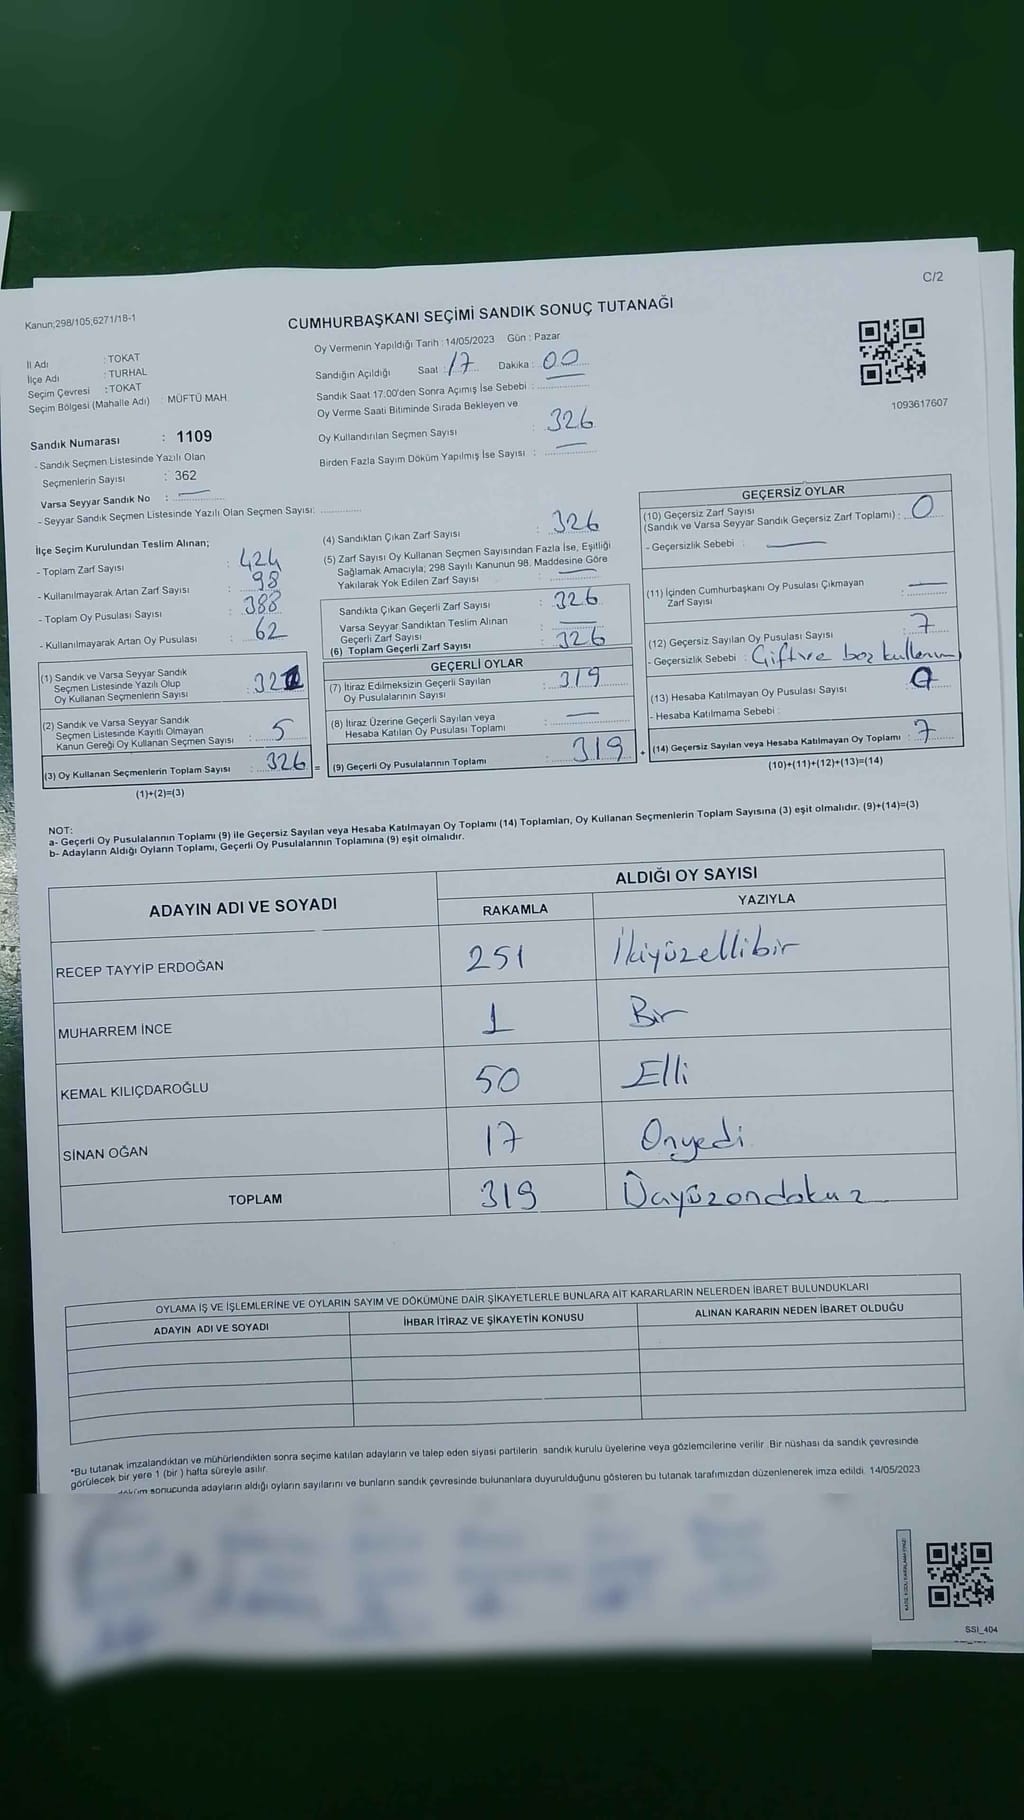 C/2
Kanun;298/105;6271/18-1
CUMHURBAŞKANI SEÇİMİ SANDIK SONUÇ TUTANAĞI
İl Adı : TOKAT
İlçe Adı : TURHAL
Seçim Çevresi : TOKAT
Seçim Bölgesi (Mahalle Adı) : MÜFTÜ MAH.
Sandık Numarası : 1109
- Sandık Seçmen Listesinde Yazılı Olan
Seçmenlerin Sayısı : 362
Varsa Seyyar Sandık No :
- Seyyar Sandık Seçmen Listesinde Yazılı Olan Seçmen Sayısı:
Oy Vermenin Yapıldığı Tarih : 14/05/2023 Gün : Pazar
Sandığın Açıldığı Saat : 17 Dakika : 00
Sandık Saat 17.00'den Sonra Açımış İse Sebebi :
Oy Verme Saati Bitiminde Sırada Bekleyen ve
Oy Kullandırılan Seçmen Sayısı : 326
Birden Fazla Sayım Döküm Yapılmış İse Sayısı :
1093617607
İlçe Seçim Kurulundan Teslim Alınan;
- Toplam Zarf Sayısı : 424
- Kullanılmayarak Artan Zarf Sayısı : 98
- Toplam Oy Pusulası Sayısı : 388
- Kullanılmayarak Artan Oy Pusulası : 62
(1) Sandık ve Varsa Seyyar Sandık
Seçmen Listesinde Yazılı Olup
Oy Kullanan Seçmenlerin Sayısı : 321
(2) Sandık ve Varsa Seyyar Sandık
Seçmen Listesinde Kayıtlı Olmayan
Kanun Gereği Oy Kullanan Seçmen Sayısı : 5
(3) Oy Kullanan Seçmenlerin Toplam Sayısı : 326 =
(1)+(2)=(3)
(4) Sandıktan Çıkan Zarf Sayısı : 326
(5) Zarf Sayısı Oy Kullanan Seçmen Sayısından Fazla İse, Eşitliği
Sağlamak Amacıyla; 298 Sayılı Kanunun 98. Maddesine Göre
Yakılarak Yok Edilen Zarf Sayısı :
Sandıkta Çıkan Geçerli Zarf Sayısı : 326
Varsa Seyyar Sandıktan Teslim Alınan
Geçerli Zarf Sayısı :
(6) Toplam Geçerli Zarf Sayısı : 326
GEÇERLİ OYLAR
(7) İtiraz Edilmeksizin Geçerli Sayılan
Oy Pusulalarının Sayısı : 319
(8) İtiraz Üzerine Geçerli Sayılan veya
Hesaba Katılan Oy Pusulası Toplamı :
(9) Geçerli Oy Pusulalarının Toplamı : 319 +
GEÇERSİZ OYLAR
(10) Geçersiz Zarf Sayısı
(Sandık ve Varsa Seyyar Sandık Geçersiz Zarf Toplamı) : 0
- Geçersizlik Sebebi :
(11) İçinden Cumhurbaşkanı Oy Pusulası Çıkmayan
Zarf Sayısı :
(12) Geçersiz Sayılan Oy Pusulası Sayısı : 7
- Geçersizlik Sebebi : Çift ve boş kullanım
(13) Hesaba Katılmayan Oy Pusulası Sayısı
- Hesaba Katılmama Sebebi :
(14) Geçersiz Sayılan veya Hesaba Katılmayan Oy Toplamı : 7
(10)+(11)+(12)+(13)=(14)
NOT:
a- Geçerli Oy Pusulalarının Toplamı (9) ile Geçersiz Sayılan veya Hesaba Katılmayan Oy Toplamı (14) Toplamları, Oy Kullanan Seçmenlerin Toplam Sayısına (3) eşit olmalıdır. (9)+(14)=(3)
b- Adayların Aldığı Oyların Toplamı, Geçerli Oy Pusulalarının Toplamına (9) eşit olmalıdır.
ADAYIN ADI VE SOYADI
ALDIĞI OY SAYISI
RAKAMLA YAZIYLA
RECEP TAYYİP ERDOĞAN 251 İkiyüzellibir
MUHARREM İNCE 1 Bir
KEMAL KILIÇDAROĞLU 50 Elli
SİNAN OĞAN 17 Onyedi
TOPLAM 319 Üçyüzondokuz
OYLAMA İŞ VE İŞLEMLERİNE VE OYLARIN SAYIM VE DÖKÜMÜNE DAİR ŞİKAYETLERLE BUNLARA AİT KARARLARIN NELERDEN İBARET BULUNDUKLARI
ADAYIN ADI VE SOYADI İHBAR İTİRAZ VE ŞİKAYETİN KONUSU ALINAN KARARIN NEDEN İBARET OLDUĞU
*Bu tutanak imzalandıktan ve mühürlendikten sonra seçime katılan adayların ve talep eden siyasi partilerin sandık kurulu üyelerine veya gözlemcilerine verilir. Bir nüshası da sandık çevresinde
görülecek bir yere 1 (bir) hafta süreyle asılır.
sonucunda adayların aldığı oyların sayılarını ve bunların sandık çevresinde bulunanlara duyurulduğunu gösteren bu tutanak tarafımızdan düzenlenerek imza edildi. 14/05/2023
SSI_404